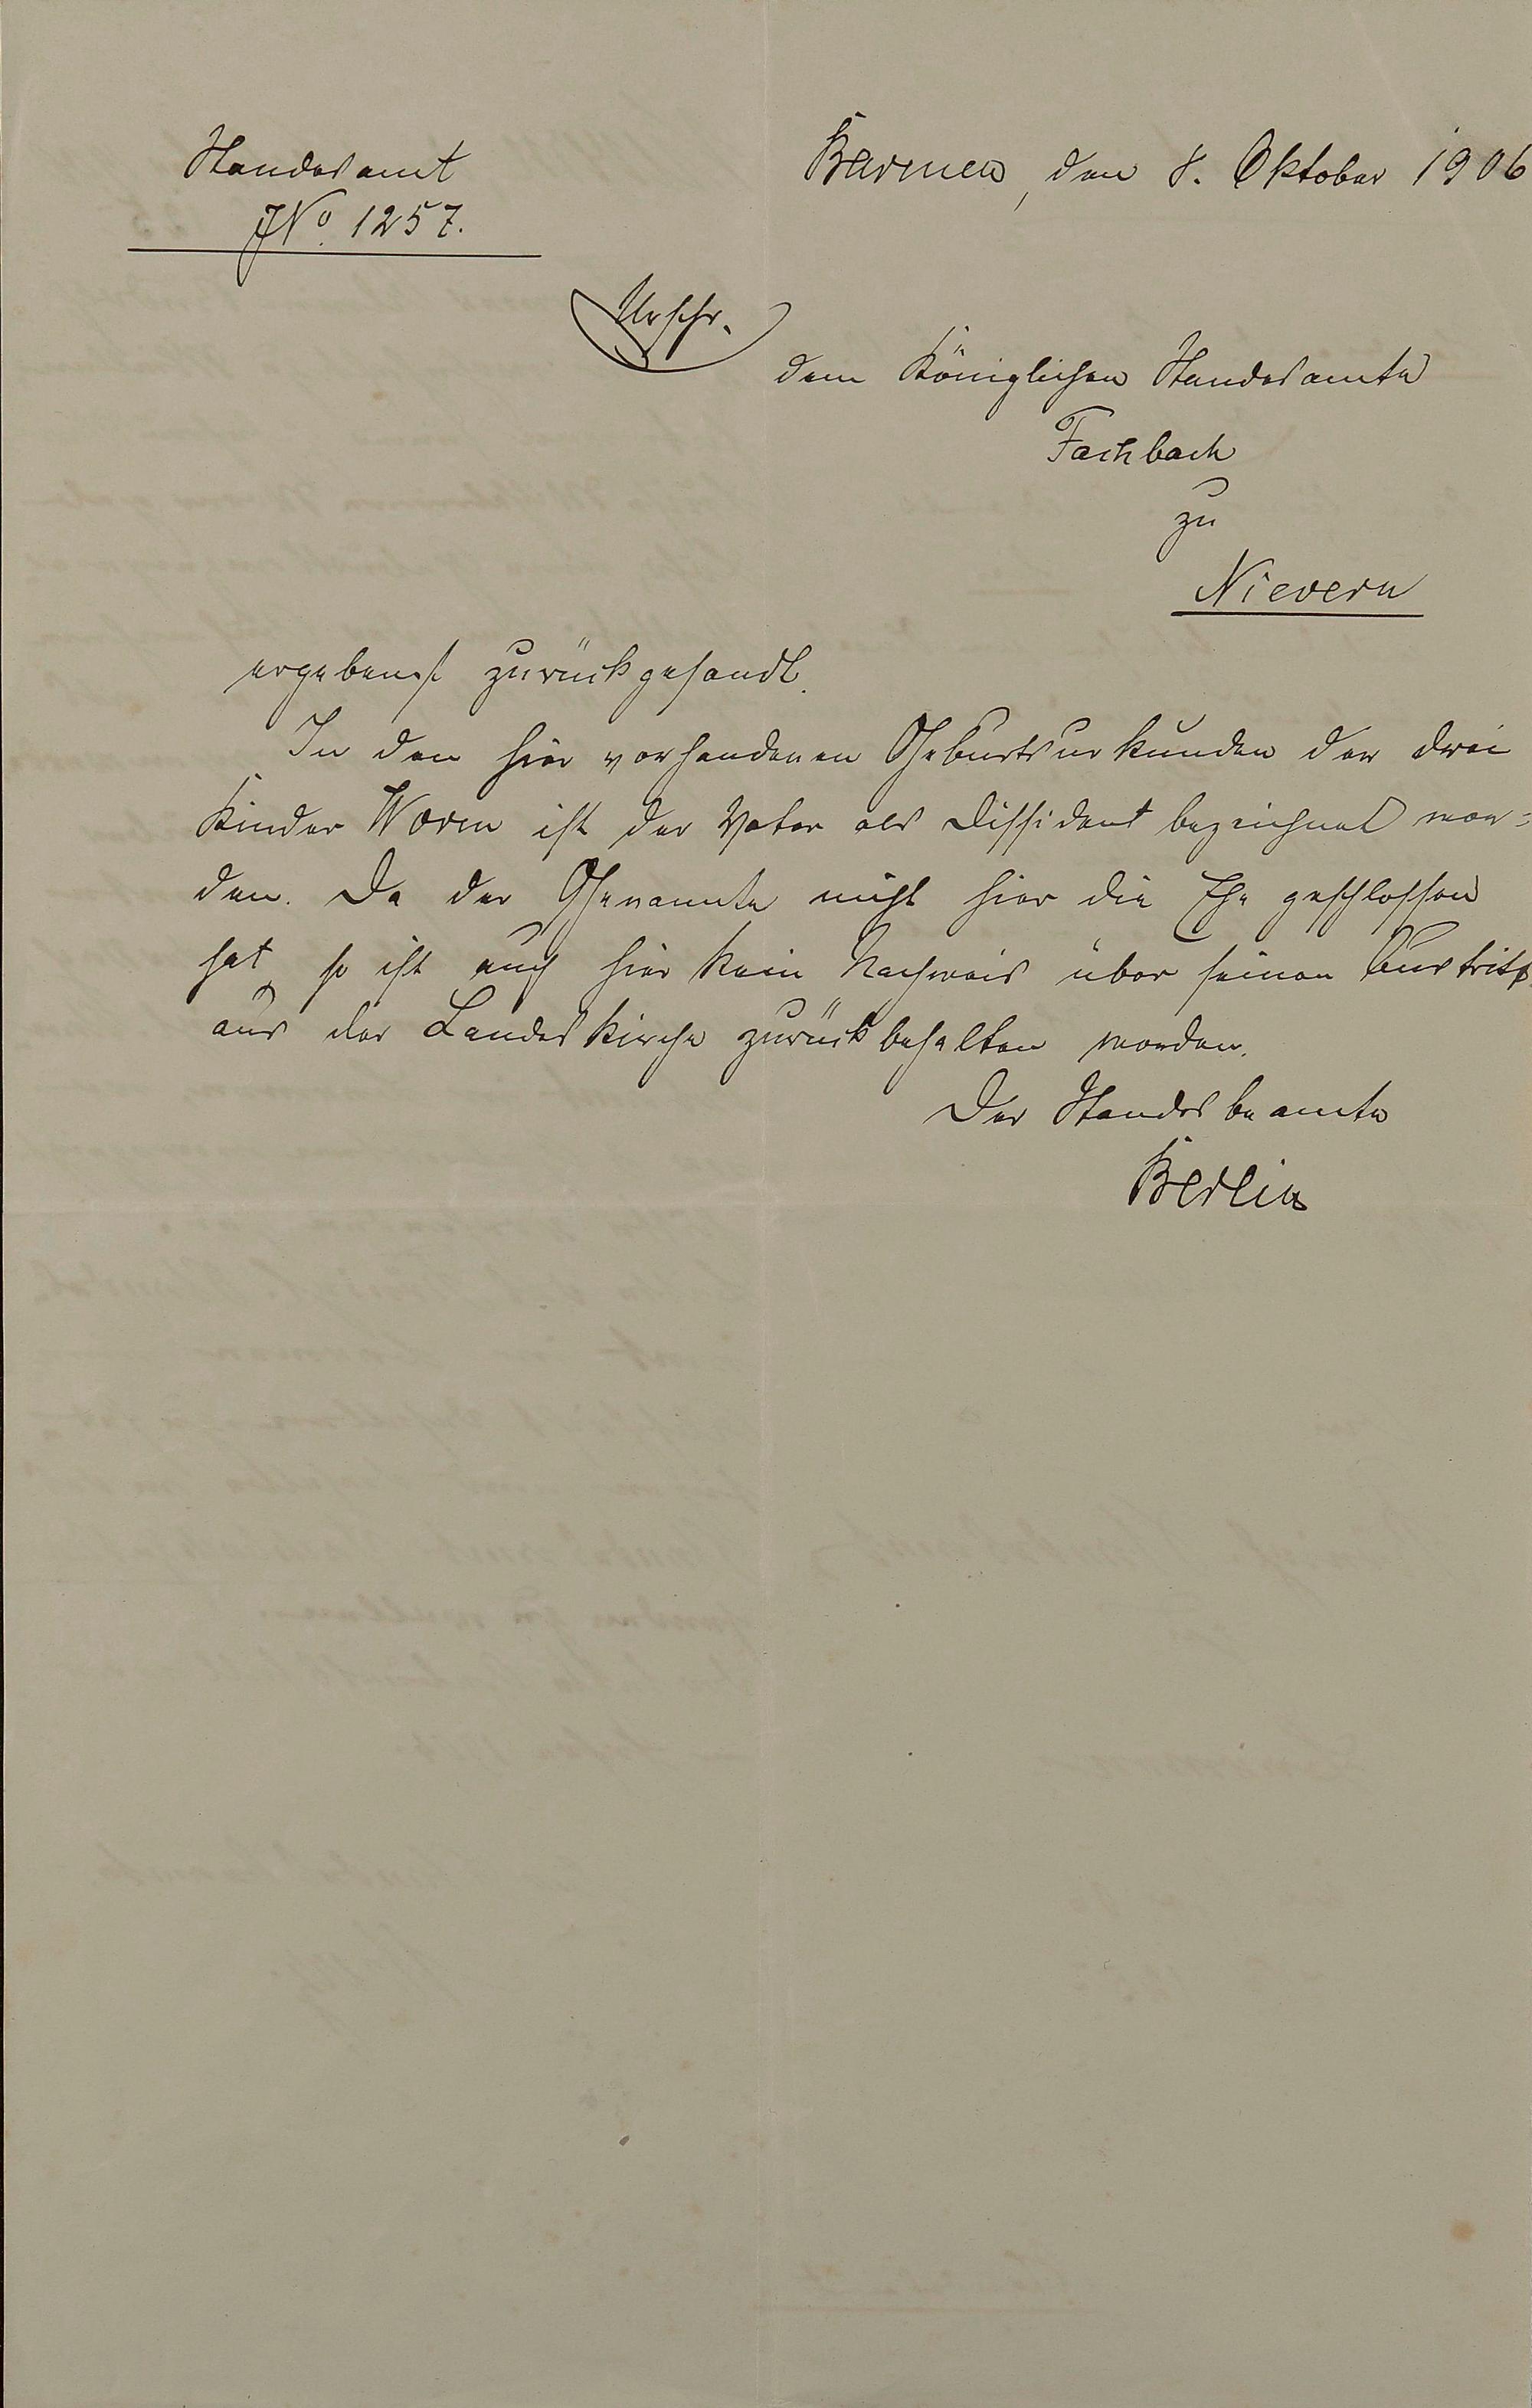 Standesamt
JNo. 1257.
Barmen, den 8. Oktober 1906
Urschr.
dem Königlichen Standesamte
Fachbach
zu
Nievern
ergebenst zurückgesandt.
In den hier vorhandenen Geburtsurkunden der drei
Kinder Worm ist der Vater als Dissident bezeichnet wor=
den. Da der Genannte nicht hier die Ehe geschlossen
hat, so ist auch hier kein Nachweis über seinen Austritt
aus der Landeskirche zurückbehalten worden.
Der Standesbeamte
Berlin